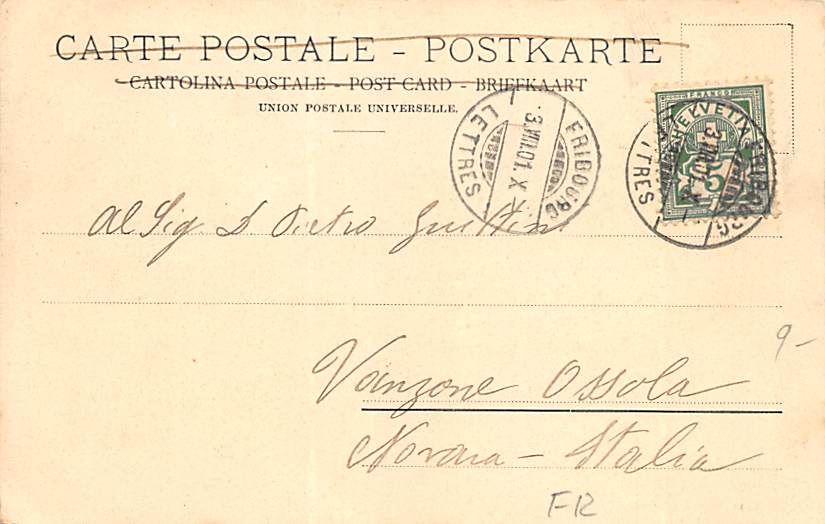 CARTE POSTALE - POSTKARTE
CARTOLINA POSTALE - POST CARD - BRIEFKAART
UNION POSTALE UNIVERSELLE.
FRIBOURG
LETTRES
3.VII.01.X
FRANCO
HELVETIA
5
FRIBOURG
LETTRES
Al Sig. D Pietro
9-
Vanzone Ossola
Novara - Italia
FR